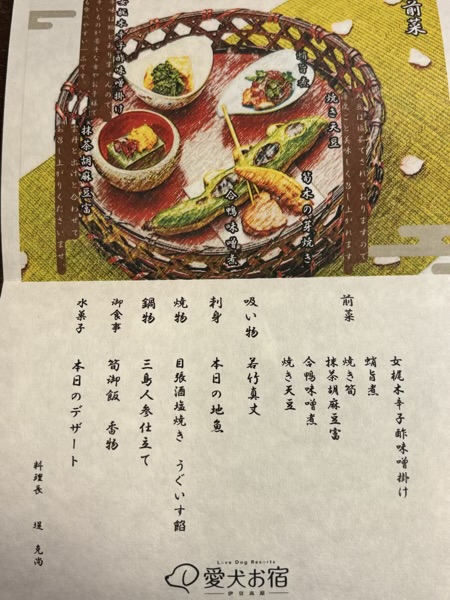 前菜
女梶木辛子酢味噌掛け
蛸旨煮
焼き天豆
筍木の芽焼き
合鴨味噌煮
抹茶胡麻豆富
前菜
女梶木辛子酢味噌掛け
蛸旨煮
焼き筍
抹茶胡麻豆富
合鴨味噌煮
焼き天豆
吸い物 若竹真丈
刺身 本日の地魚
焼物 目張酒塩焼き うぐいす餡
鍋物 三島人参仕立て
御食事 筍御飯 香物
水菓子 本日のデザート
料理長 堤 克尚
Love Dog Resorts
愛犬お宿
伊豆高原